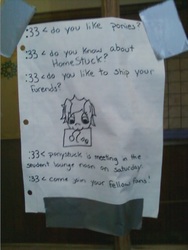 :33 < do you like ponies?
:33 < do you know about
HomeStuck?
:33 < do you like to ship your
furends?
:33 < ponystuck is meeting in the
student lounge room on saturday!
:33 < come join your fellow fans!